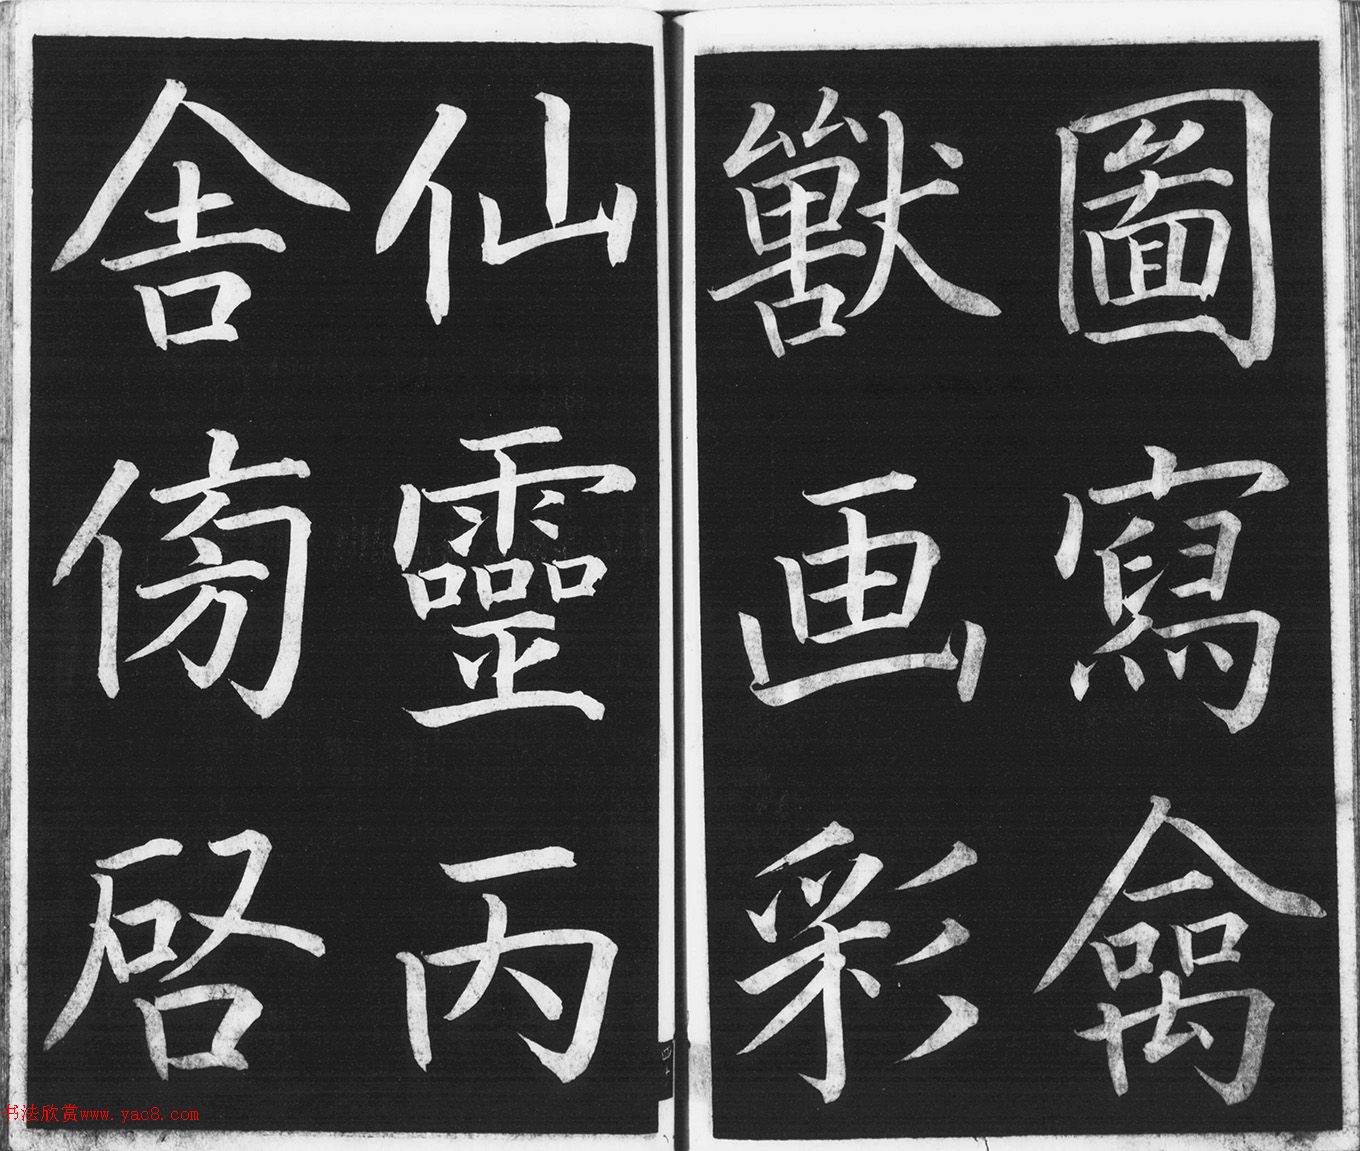 圖寫禽
獸画彩
仙靈丙
舎傍啓
书法欣赏www.yac8.com